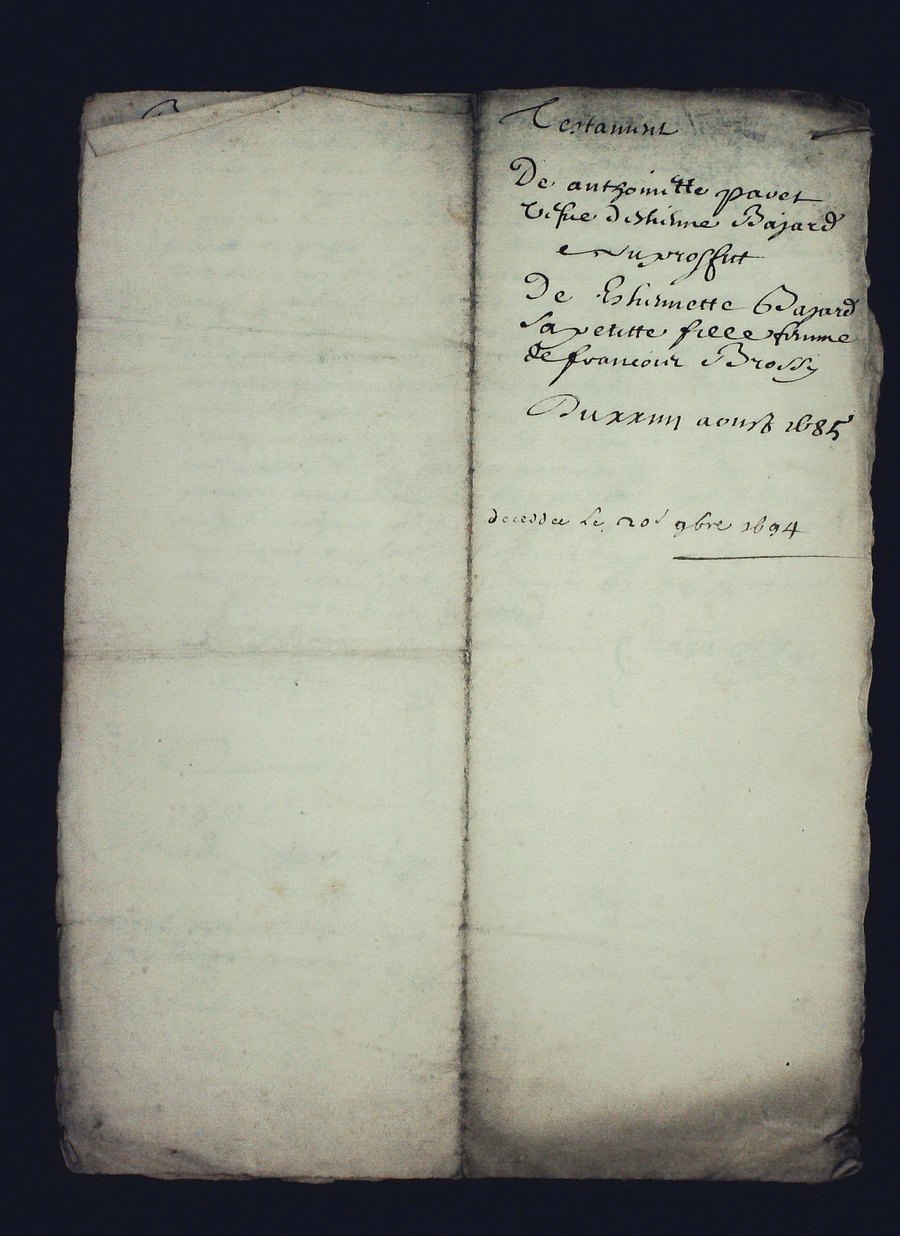 Testament
De anthoinette pavet
vefve d'Estienne Bajard
au proffit
De Estiennette Bajard
sa petitte fille femme
de francois Brossy
Du xxiiii aoust 1685
decedee le 20e 9bre 1694